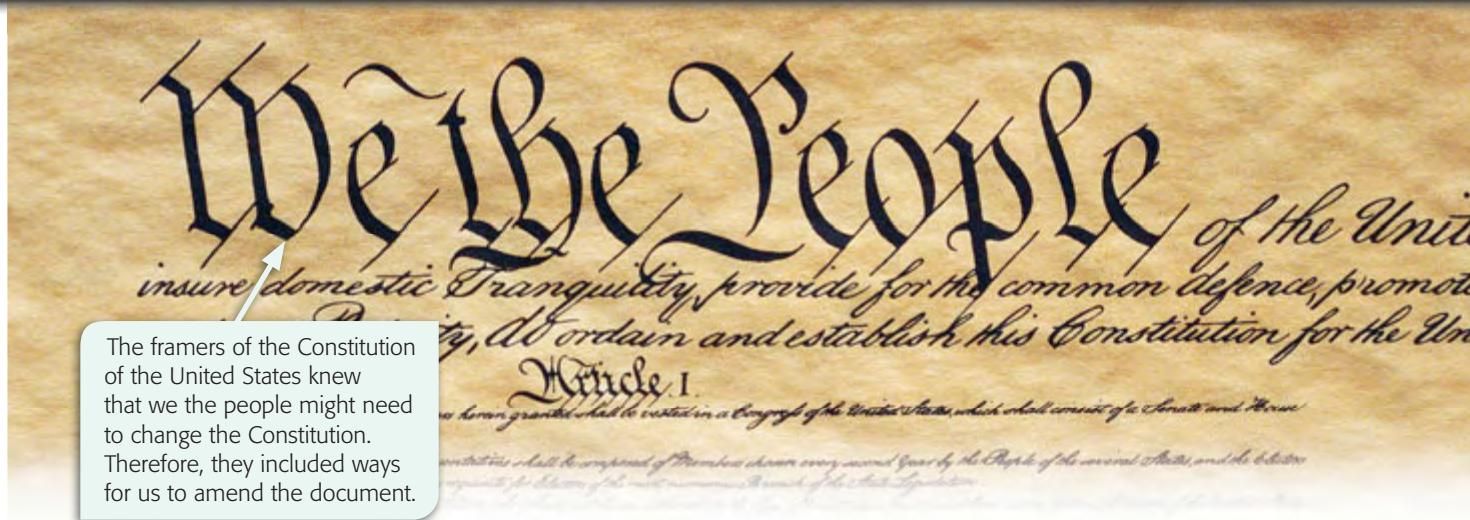 We the People of the Unite
insure domestic Tranquility, provide for the common defence, promote
ty, do ordain and establish this Constitution for the Un
Article. I.
herein granted shall be vested in a Congress of the United States, which shall consist of a Senate and House
shall be composed of Members chosen every second Year by the People of the several States, and the Electors
for Electors of the most numerous Branch of the State Legislature.
The framers of the Constitution
of the United States knew
that we the people might need
to change the Constitution.
Therefore, they included ways
for us to amend the document.